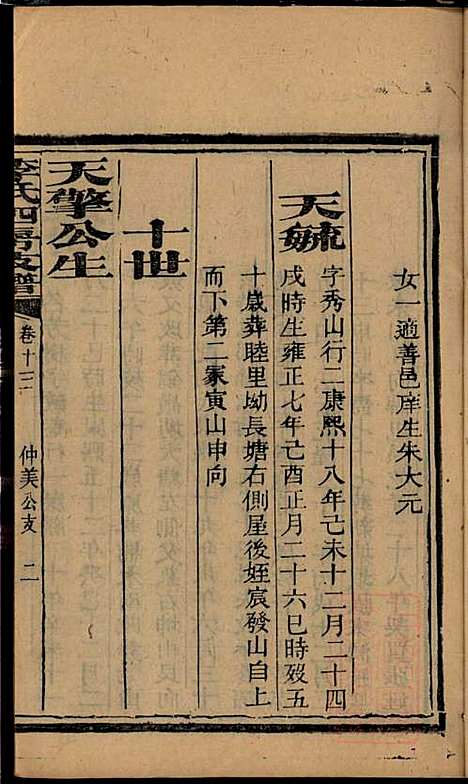 女一適善邑庠生朱大元
天毓
字秀山行二康熙十八年己未十二月二十四
戌時生雍正七年己酉正月二十六巳時歿五
十歲葬睦里坳長塘右側屋後姪宸發山自上
而下第二冢寅山申向
十世
天擎公生
李氏四房支譜
卷十三
仲美公支
二